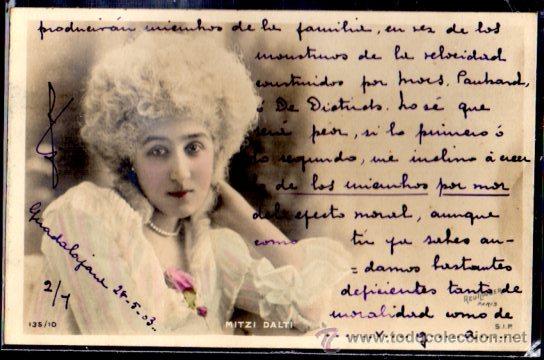 producirán miembros de la familia, en vez de los
monstruos de la velocidad
construidos por Mors. Panhard,
ó De Dietrich. No sé que
será peor, si lo primero ó
lo segundo, me inclino á creer
de los miembros por mor
del efecto moral, aunque
como tú ya sabes an-
damos bastantes
deficientes tanto de
moralidad como de
Guadalajara 28-5-03.
2/7
REUTLINGER
PARIS
S.I.P.
135/10
MITZI DALTI
www.todocoleccion.net